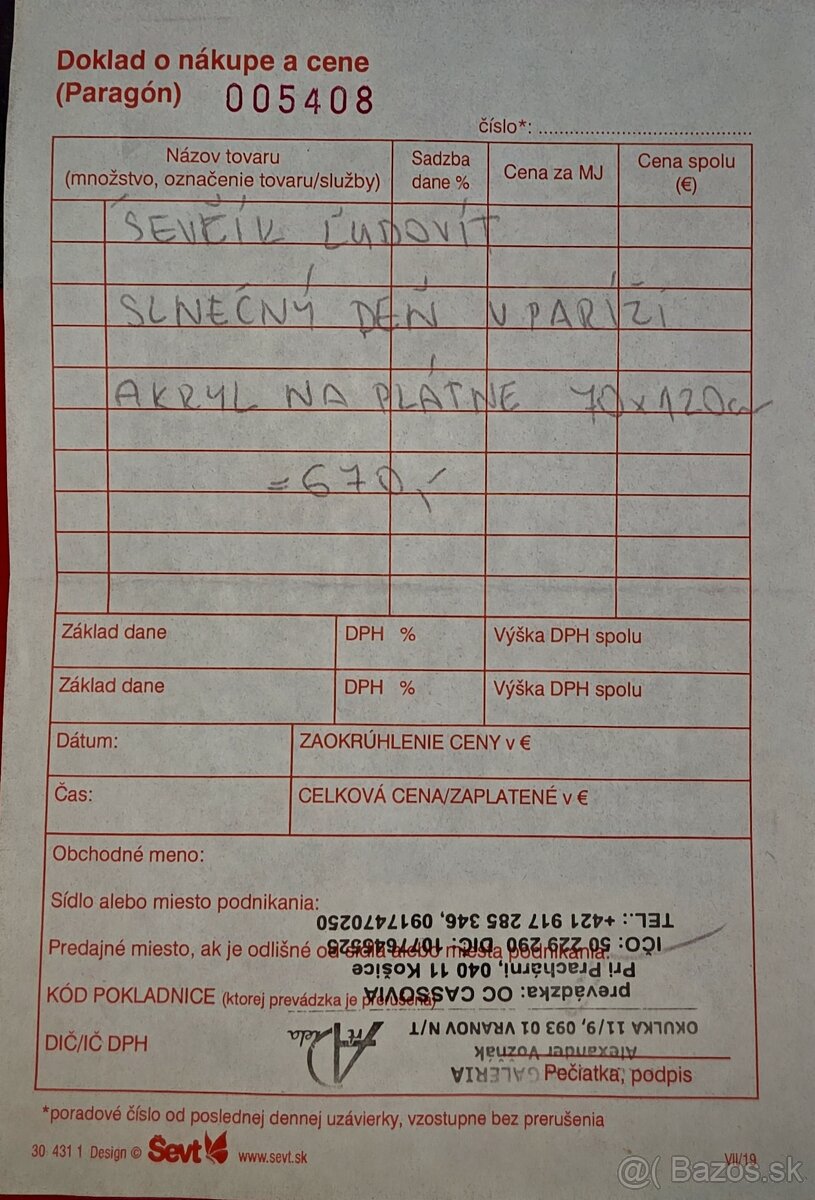 Doklad o nákupe a cene
(Paragón) 005408
číslo*: ........................................
Názov tovaru
(množstvo, označenie tovaru/služby)
Sadzba
dane %
Cena za MJ
Cena spolu
(€)
ŠEVČÍK ĽUDOVÍT
SLNEČNÝ DEŇ V PARÍŽI
AKRYL NA PLÁTNE 70x120cm
=670,-
Základ dane DPH % Výška DPH spolu
Základ dane DPH % Výška DPH spolu
Dátum: ZAOKRÚHLENIE CENY v €
Čas: CELKOVÁ CENA/ZAPLATENÉ v €
Obchodné meno:
Sídlo alebo miesto podnikania:
Predajné miesto, ak je odlišné od sídla alebo miesta podnikania:
KÓD POKLADNICE (ktorej prevádzka je prerušená)
DIČ/IČ DPH
Pečiatka, podpis
GALERIA
Art Adela
Alexander Voznák
OKULKA 11/9, 093 01 VRANOV N/T
prevádzka: OC CASSOVIA
Pri Prachárni, 040 11 Košice
IČO: 50 229 290 DIČ: 1077645525
TEL.: +421 917 285 346, 0917470250
*poradové číslo od poslednej dennej uzávierky, vzostupne bez prerušenia
30 431 1 Design © Ševt www.sevt.sk VII/19
@( Bazos.sk